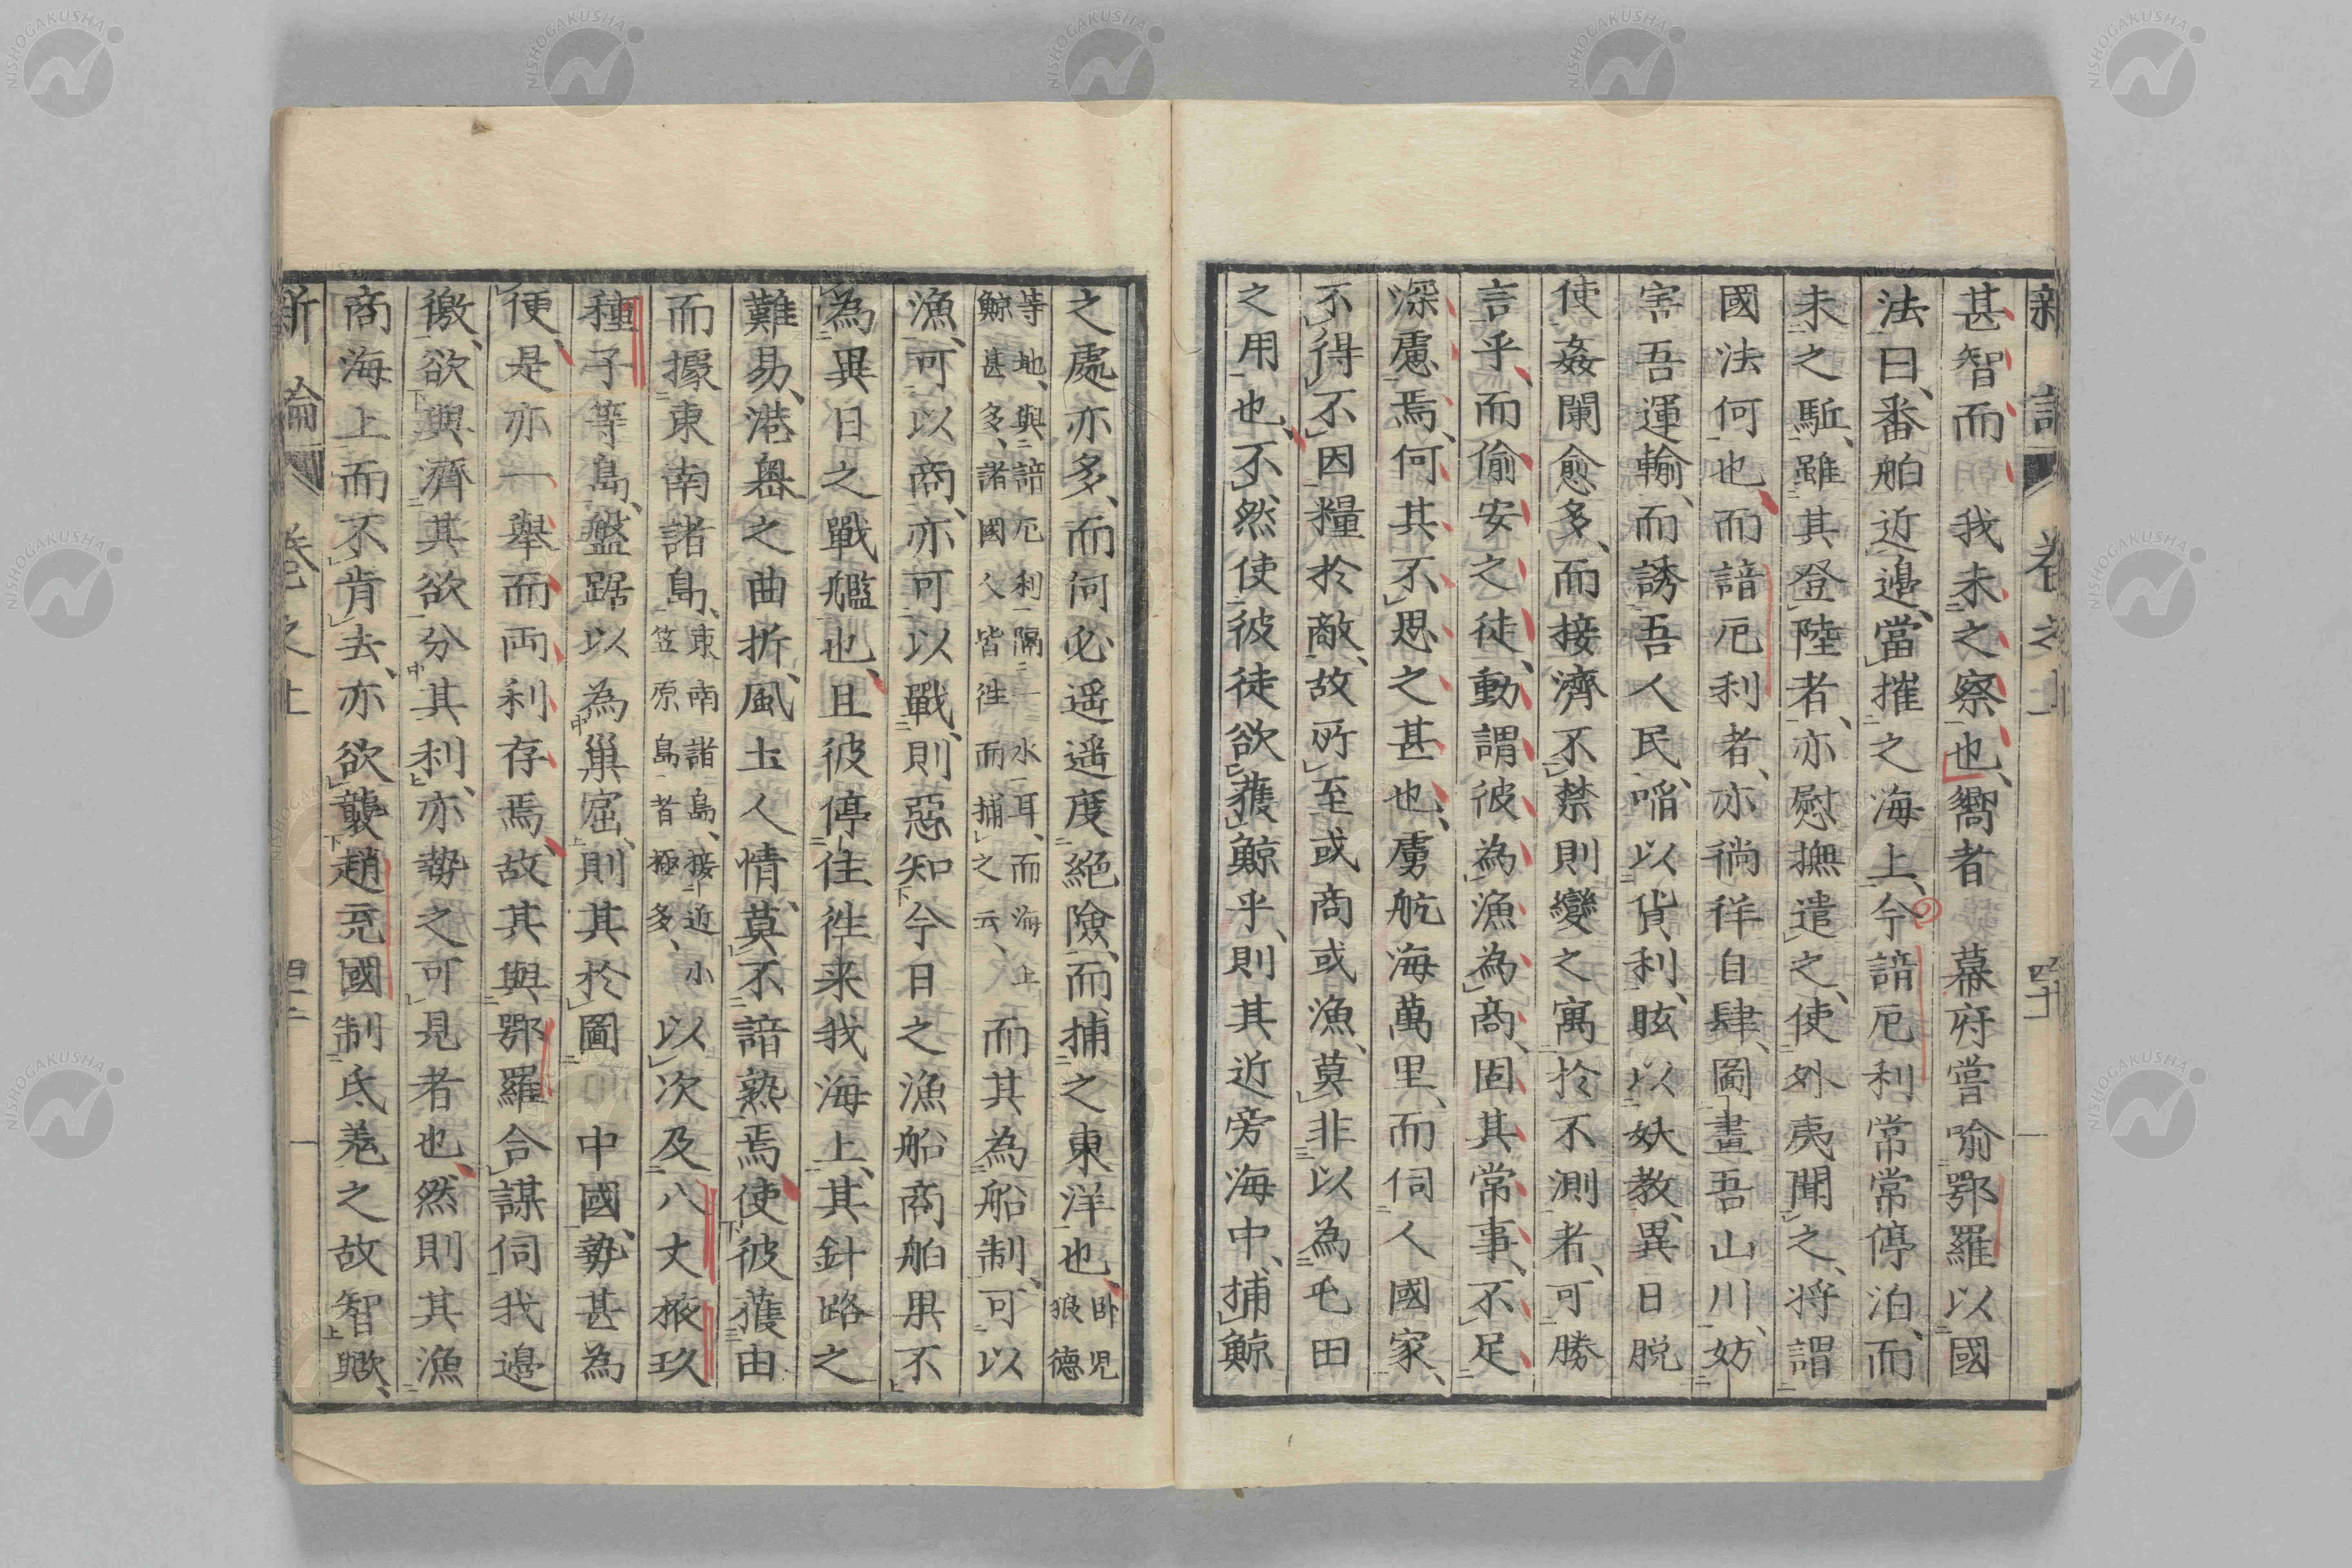 新論 卷之上 四十一
甚智而我未之察也、嚮者幕府嘗喩鄂羅以國
法曰、番舶近邉、當摧之海上、今諳厄利常常停泊、而
未之駈、雖其登陸者、亦慰撫遣之、使外夷聞之、将謂
國法何也、而諳厄利者、亦徜徉自肆、圖畫吾山川、妨
害吾運輸、而誘吾人民、啗以貨利、眩以妖教、異日脱
使姦闌愈多、而接濟不禁則變之寓於不測者、可勝
言乎、而偷安之徒、動謂彼為漁為商、固其常事、不足
深慮焉、何其不思之甚也、虜航海萬里、而伺人國家、
不得不因糧於敵、故所至或商或漁、莫非以為屯田
之用也、不然使彼徒欲獲鯨乎、則其近旁海中、捕鯨
之處亦多、而何必遥遥度絶險、而捕之東洋也、卧児狼德
等地、與諳厄利隔一水耳、而海上鯨甚多、諸國人皆徃而捕之云、而其為船制、可以
漁、可以商、亦可以戰、則惡知今日之漁船商舶果不
為異日之戰艦也、且彼停住徃来我海上、其針路之
難易、港奥之曲折、風土人情、莫不諳熟焉、使彼獲由
而據東南諸島、東南諸島、接近小笠原島者極多、以次及八丈掖玖
種子等島、盤踞以為巢窟、則其於圖中國、勢甚為
便、是亦一舉而両利存焉、故其與鄂羅合謀伺我邉
徼、欲與濟其欲分其利、亦勢之可見者也、然則其漁
商海上而不肯去、亦欲襲趙充國制氐羗之故智歟、
新論 卷之上 四十二